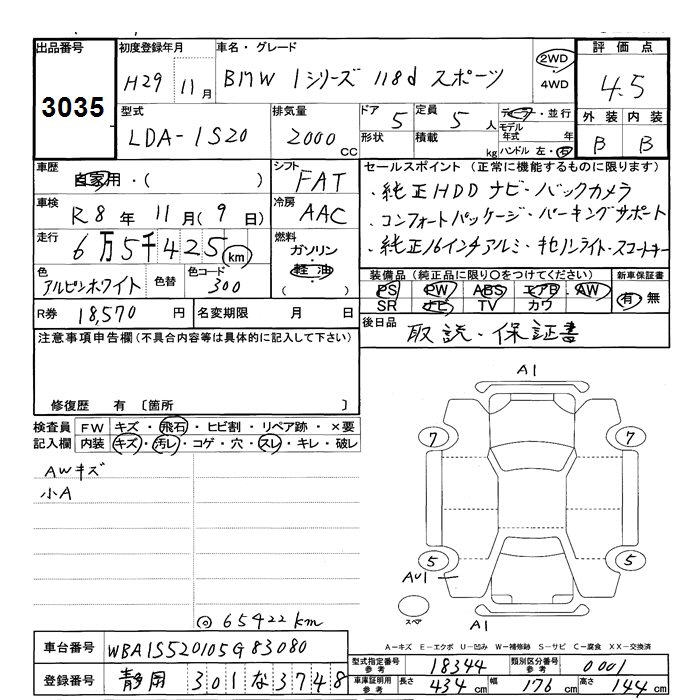 出品番号 初度登録年月 車名・グレード 評価点
3035 H29 11月 BMW 1シリーズ 118d スポーツ 2WD 4WD 4.5
型式 排気量 ドア 定員 ディーラー・並行 外装 内装
LDA-1S20 2000cc 5 5人 モデル年式 年 B B
形状 積載 kg ハンドル 左・右
車歴 自家用・( ) シフト FAT セールスポイント (正常に機能するものに限ります)
車検 R8年 11月(9日) 冷房 AAC ・純正HDDナビ・バックカメラ
・コンフォートパッケージ・パーキングサポート
走行 6万5千425km 燃料 ガソリン・軽油 ( ) ・純正16インチアルミ・キセノンライト・スマートキー
色 アルピンホワイト 色替 色コード 300 装備品 (純正品に限り○をつけてください) 新車保証書
PS PW ABS エアB AW 有・無
SR ナビ TV カワ
R券 18,570円 名変期限 月 日 後日品 取説・保証書
注意事項申告欄 (不具合内容等は具体的に記入して下さい)
修復歴 有 〔箇所 〕
検査員記入欄 FW キズ・飛石・ヒビ割・リペア跡・×要
内装 キズ・汚レ・コゲ・穴・スレ・キレ・破レ
AWキズ
小A
◎65422km
A1
7 7
5 5
AU1
スペア
A1
A-キズ E-エクボ U-凹み W-補修跡 S-サビ C-腐食 XX-交換済
車台番号 WBA1S520105G83080 型式指定番号 参考 18344 類別区分番号 参考 0001
登録番号 静岡 301 な 3748 車庫証明用 参考 長さ 434cm 幅 176cm 高さ 144cm